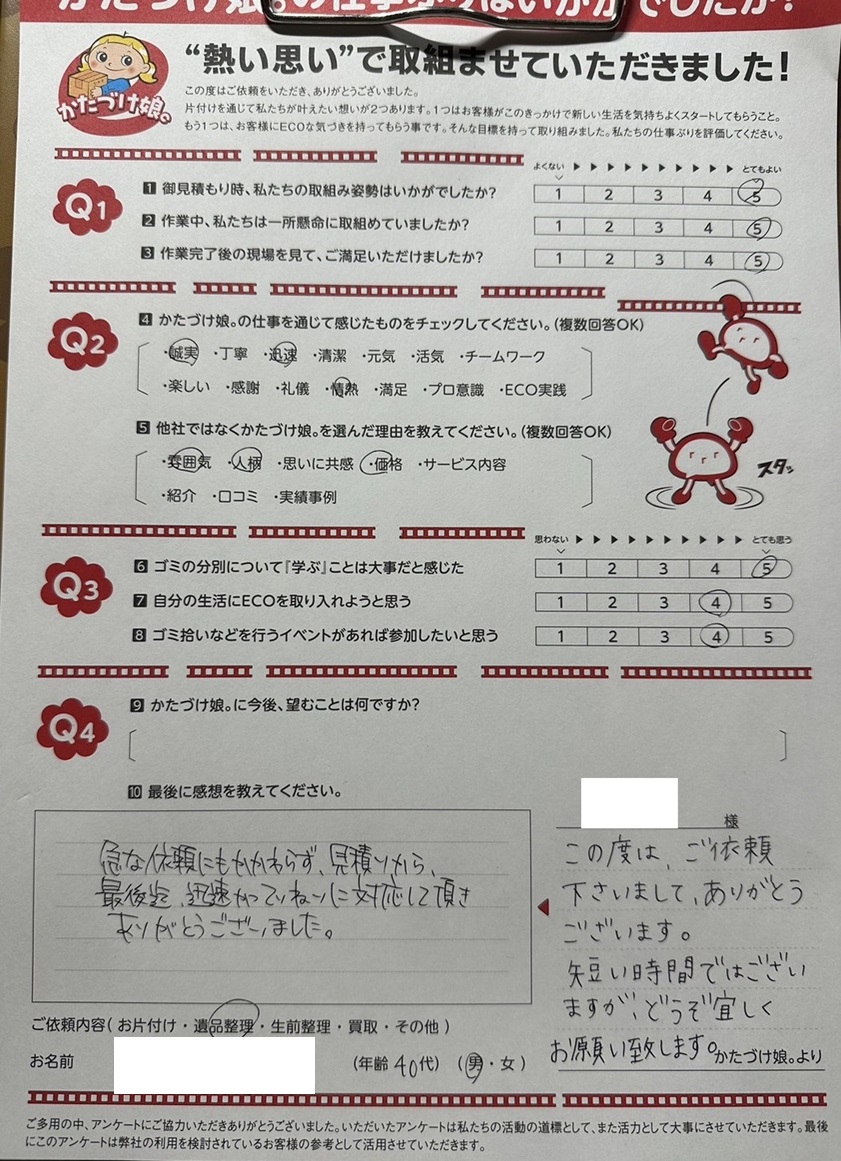 かたづけ娘。の仕事ぶりはいかがでしたか?
かたづけ娘。
“熱い思い”で取組ませていただきました!
この度はご依頼をいただき、ありがとうございました。
片付けを通じて私たちが叶えたい想いが2つあります。1つはお客様がこのきっかけで新しい生活を気持ちよくスタートしてもらうこと。
もう1つは、お客様にECOな気づきを持ってもらう事です。そんな目標を持って取り組みました。私たちの仕事ぶりを評価してください。
よくない とてもよい
Q1
1 御見積もり時、私たちの取組み姿勢はいかがでしたか? 1 2 3 4 5
2 作業中、私たちは一所懸命に取組めていましたか? 1 2 3 4 5
3 作業完了後の現場を見て、ご満足いただけましたか? 1 2 3 4 5
Q2
4 かたづけ娘。の仕事を通じて感じたものをチェックしてください。(複数回答OK)
・誠実 ・丁寧 ・迅速 ・清潔 ・元気 ・活気 ・チームワーク
・楽しい ・感謝 ・礼儀 ・情熱 ・満足 ・プロ意識 ・ECO実践
5 他社ではなくかたづけ娘。を選んだ理由を教えてください。(複数回答OK)
・雰囲気 ・人柄 ・思いに共感 ・価格 ・サービス内容
・紹介 ・口コミ ・実績事例
スタッ
思わない とても思う
Q3
6 ゴミの分別について『学ぶ』ことは大事だと感じた 1 2 3 4 5
7 自分の生活にECOを取り入れようと思う 1 2 3 4 5
8 ゴミ拾いなどを行うイベントがあれば参加したいと思う 1 2 3 4 5
Q4
9 かたづけ娘。に今後、望むことは何ですか?
10 最後に感想を教えてください。
急な依頼にもかかわらず、見積りから、
最後迄、迅速かつていねいに対応して頂き
ありがとうございました。
様
この度は、ご依頼
下さいまして、ありがとう
ございます。
短い時間ではござい
ますが、どうぞ宜しく
お願い致します。かたづけ娘。より
ご依頼内容(お片付け・遺品整理・生前整理・買取・その他)
お名前 (年齢 40代) (男・女)
ご多用の中、アンケートにご協力いただきありがとうございました。いただいたアンケートは私たちの活動の道標として、また活力として大事にさせていただきます。最後
にこのアンケートは弊社の利用を検討されているお客様の参考として活用させていただきます。